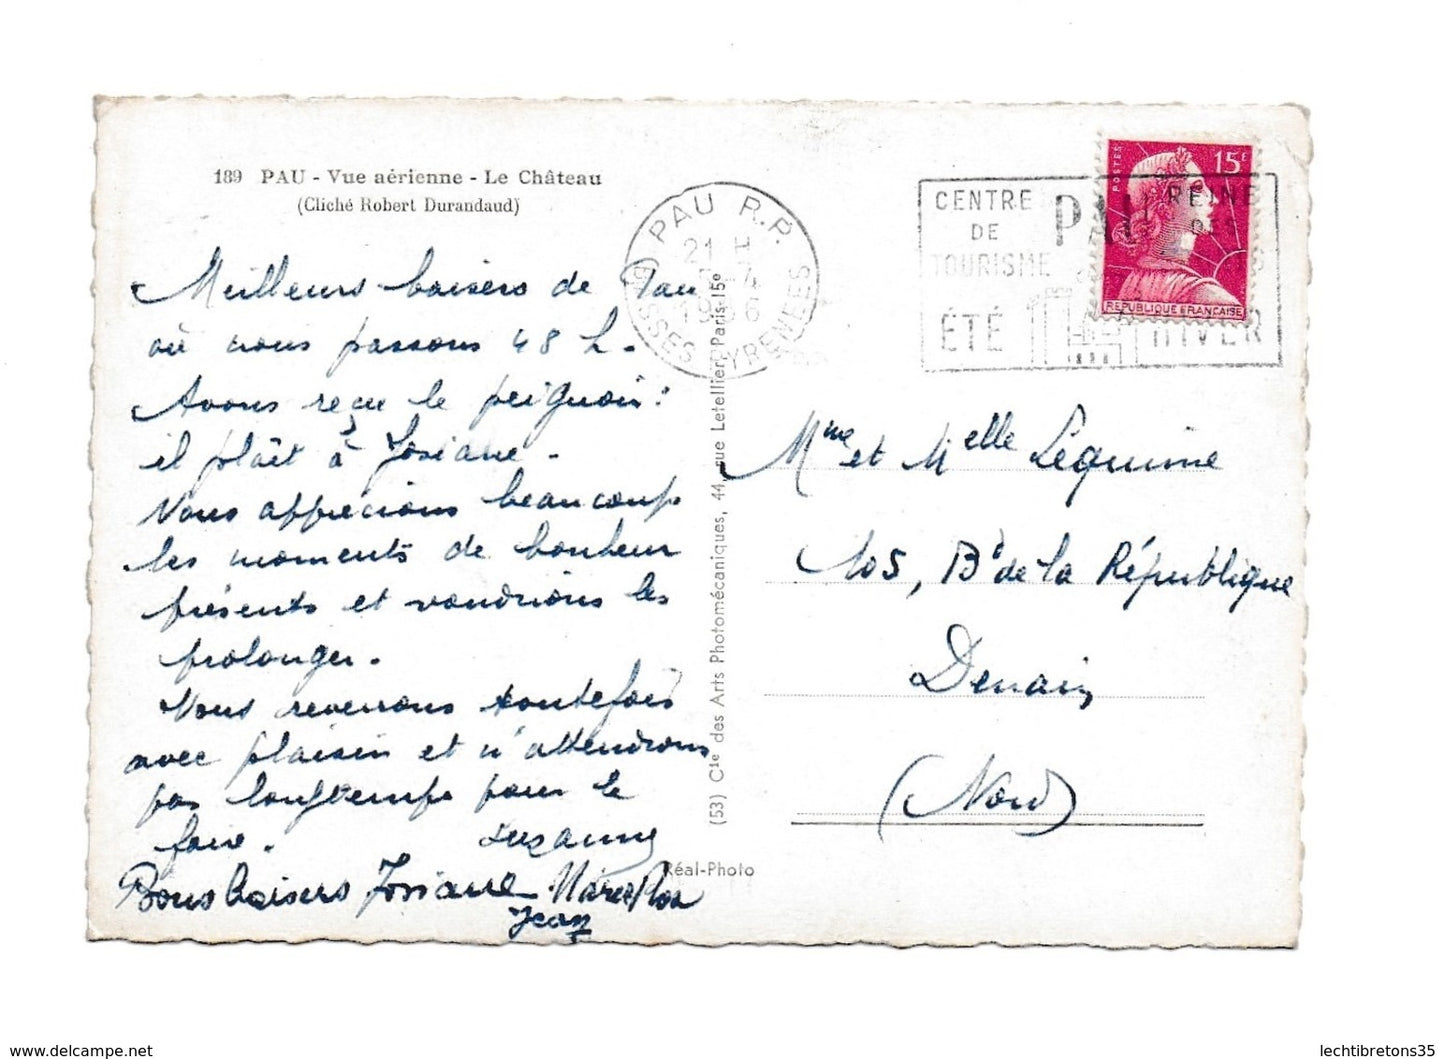 189 PAU - Vue aérienne - Le Château
(Cliché Robert Durandaud)
Meilleurs baisers de Pau
où nous passons 48 h.
Avons reçu le peignoir :
il plaît à Josiane.
Nous apprécions beaucoup
les moments de bonheur
présents et voudrions les
prolonger.
Nous reverrons toutefois
avec plaisir et n'attendrons
pas longtemps pour le
faire. Suzanne
Bons baisers Josiane
Jean
PAU R.P.
21 H
4
BSSES PYRENEES
(53) Cie des Arts Photomécaniques, 44, rue Letellier, Paris-15e
Réal-Photo
CENTRE
DE
TOURISME
PAU
REINE
DES
ÉTÉ
HIVER
POSTES
15F
REPUBLIQUE FRANÇAISE
Mme et Melle Lequime
105, Bd de la République
Denain
(Nord)
delcampe.net
lechtibretons35